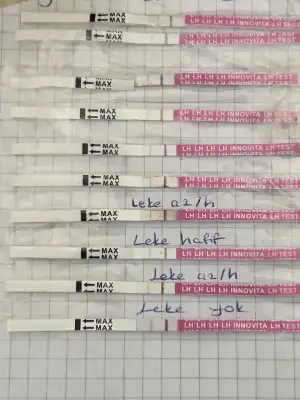 MAX LH LH LH LH INNOVITA LH TEST
MAX LH LH LH LH INNOVITA LH TEST
MAX LH LH LH LH INNOVITA LH TEST
MAX LH LH LH LH INNOVITA LH TEST
MAX LH LH LH LH INNOVITA LH TEST
MAX LH LH LH LH INNOVITA LH TEST
Leke az/h
MAX LH LH LH LH INNOVITA LH TEST
Leke hafif
MAX LH LH LH LH INNOVITA LH TEST
Leke az/h
MAX LH LH LH LH INNOVITA LH TEST
Leke yok
MAX LH LH LH LH INNOVITA LH TEST